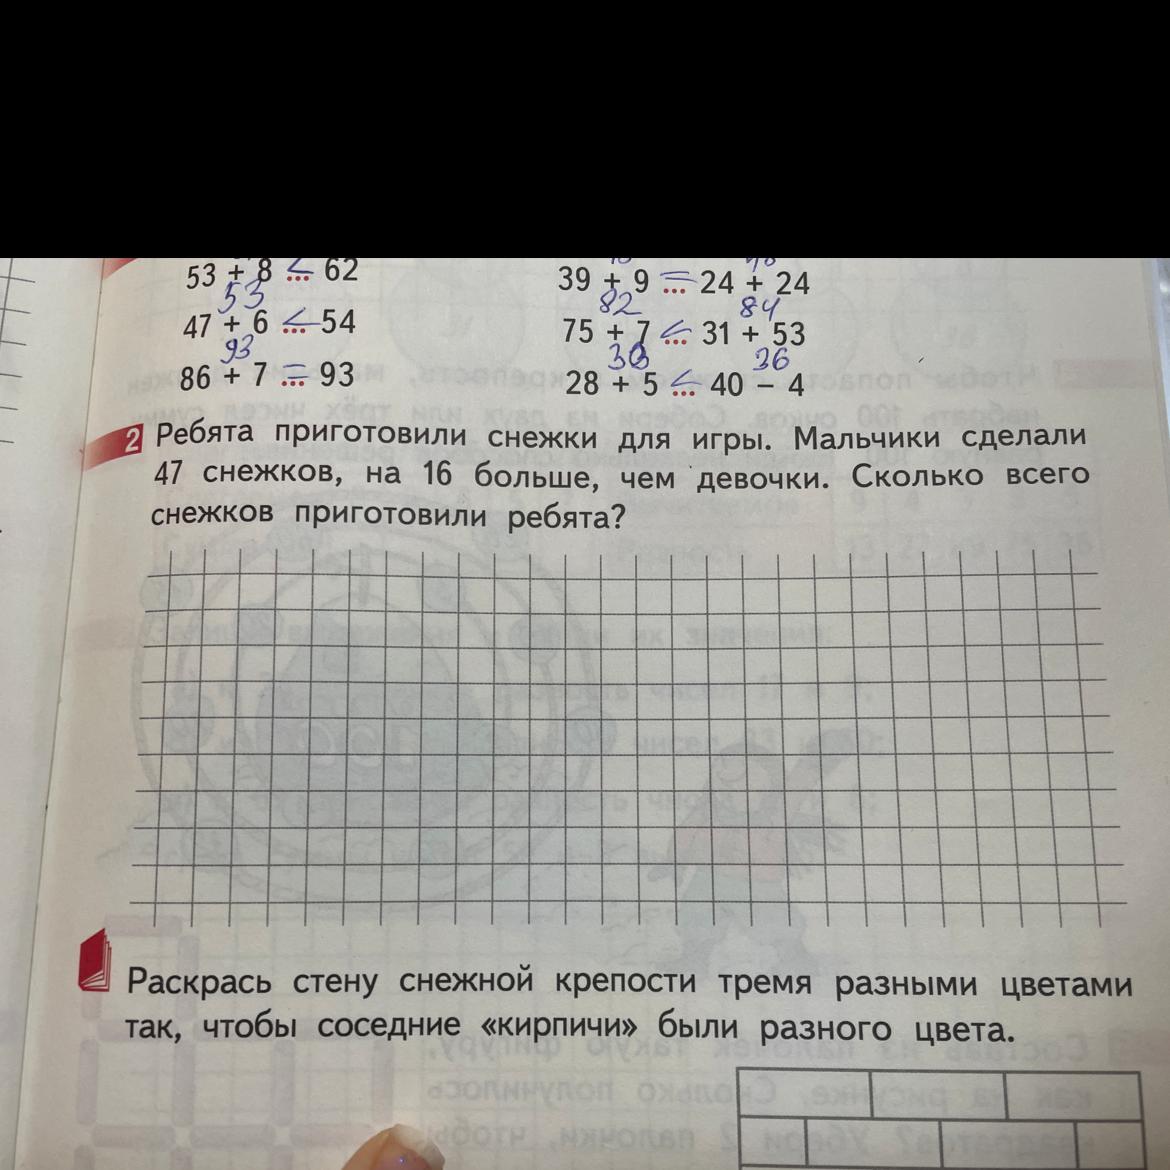 53 + 8 < 62
39 + 9 = 24 + 24
53
82 84
47 + 6 < 54
75 + 7 < 31 + 53
93
33 36
86 + 7 = 93
28 + 5 < 40 − 4
2 Ребята приготовили снежки для игры. Мальчики сделали
47 снежков, на 16 больше, чем девочки. Сколько всего
снежков приготовили ребята?
Раскрась стену снежной крепости тремя разными цветами
так, чтобы соседние «кирпичи» были разного цвета.